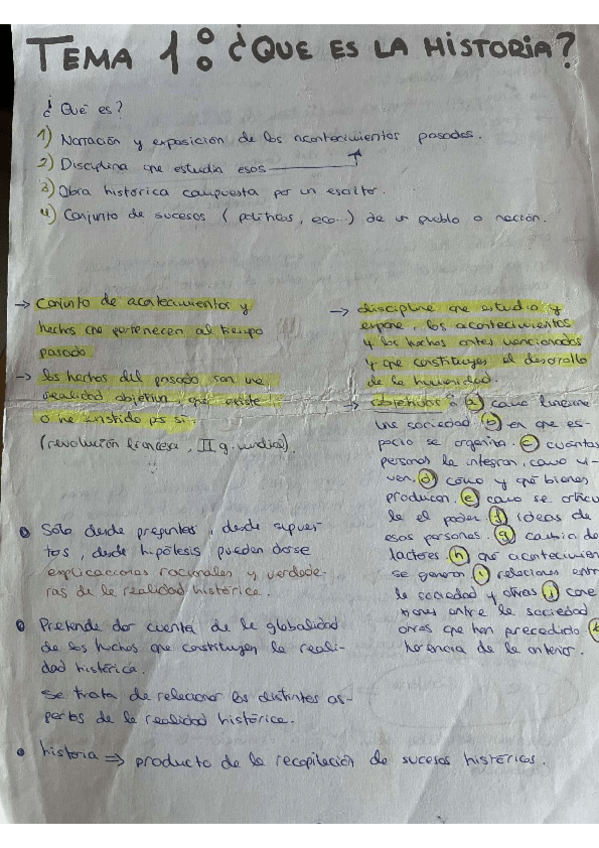 TEMA 1: ¿QUE ES LA HISTORIA?
¿Qué es?
1) Narración y exposición de los acontecimientos pasados.
2) Disciplina que estudia esos
3) Obra histórica compuesta por un escritor.
4) Conjunto de sucesos (políticos, eco...) de un pueblo o nación.
→ Conjunto de acontecimientos y
hechos que pertenecen al tiempo
pasado
→ los hechos del pasado son una
realidad objetiva, que existe
o ha existido por sí.
(revolución francesa, II g. mundial).
• Sólo desde preguntas, desde supues-
tos, desde hipótesis pueden darse
explicaciones racionales y verdade-
ras de la realidad histórica.
• Pretende dar cuenta de la globalidad
de los hechos que constituyen la reali-
dad histórica.
Se trata de relacionar los distintos as-
pectos de la realidad histórica.
• historia ⇒ producto de la recopilación de sucesos históricos.
→ disciplina que estudia y
expone, los acontecimientos
y los hechos antes mencionados
y que constituyen el desarrollo
de la humanidad.
→ objetivos: a) como funciona
una sociedad. b) en que es-
pacio se organiza. c) cuántas
personas la integran, como vi-
ven. d) como y qué bienes
producen. e) como se articu
la el poder. f) ideas de
esas personas. g) cambio de
factores. h) qué acontecimien
se generan. i) relaciones entre
la sociedad y otras. j) cone
xiones entre la sociedad
otras que han precedido k
herencia de la anterior.